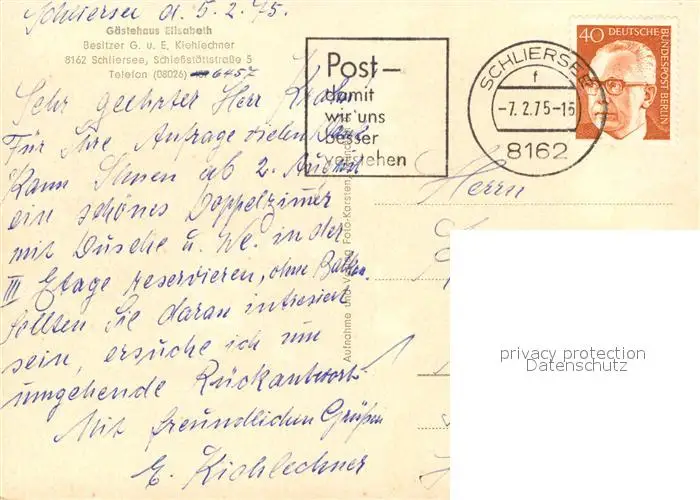 Schliersee d. 5.2.75.
Gästehaus Elisabeth
Besitzer G. u. E. Kiehlechner
8162 Schliersee, Schießstättstraße 5
Telefon (08026) 6457
Sehr geehrter Herr
Für Ihre Anfrage vielen Dank
Kann Ihnen ab 2. August
ein schönes Doppelzimmer
mit Dusche u. We. in der
III Etage reservieren, ohne Balkon.
Sollten Sie daran intresiert
sein, ersuche ich um
umgehende Rückantwort
Mit freundlichen Grüßen
E. Kiehlechner
Post—
damit
wir uns
besser
verstehen
SCHLIERSEE
f
-7.2.75-16
8162
40 DEUTSCHE
BUNDESPOST BERLIN
Aufnahme und Verlag Foto-Karsten,
Herrn
privacy protection
Datenschutz